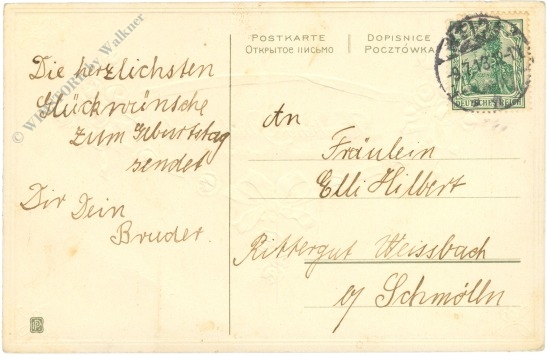 POSTKARTE
ОТКРЫТОЕ ПИСЬМО
DOPISNICE
POCZTÓWKA
DEUTSCHES REICH
Die herzlichsten
Glückwünsche
zum Geburtstag
sendet
Dir Dein
Bruder.
An
Fräulein
Elli Hilbert
Rittergut Weissbach
b/ Schmölln
© by Walkner